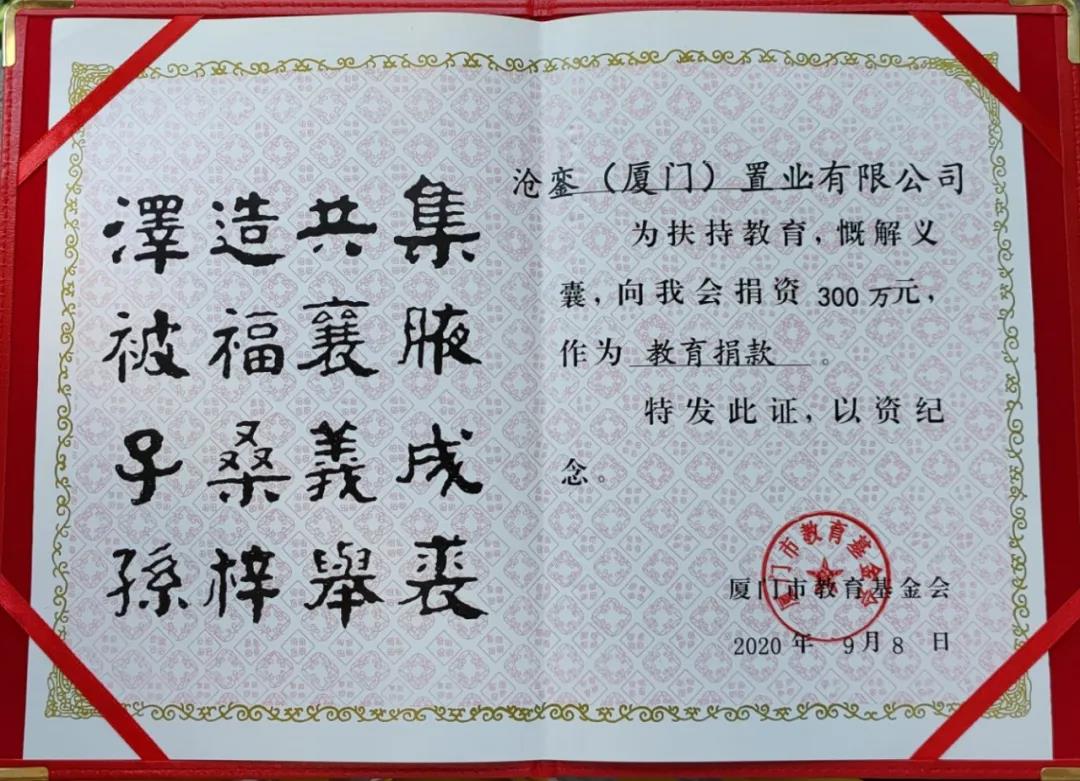 集腋成裘
共襄義舉
造福桑梓
澤被子孫
沧銮（厦门）置业有限公司
为扶持教育，慨解义
囊，向我会捐资 300 万元，
作为 教育捐款 。
特发此证，以资纪
念。
厦门市教育基金会
厦门市教育基金会
2020 年 9 月 8 日